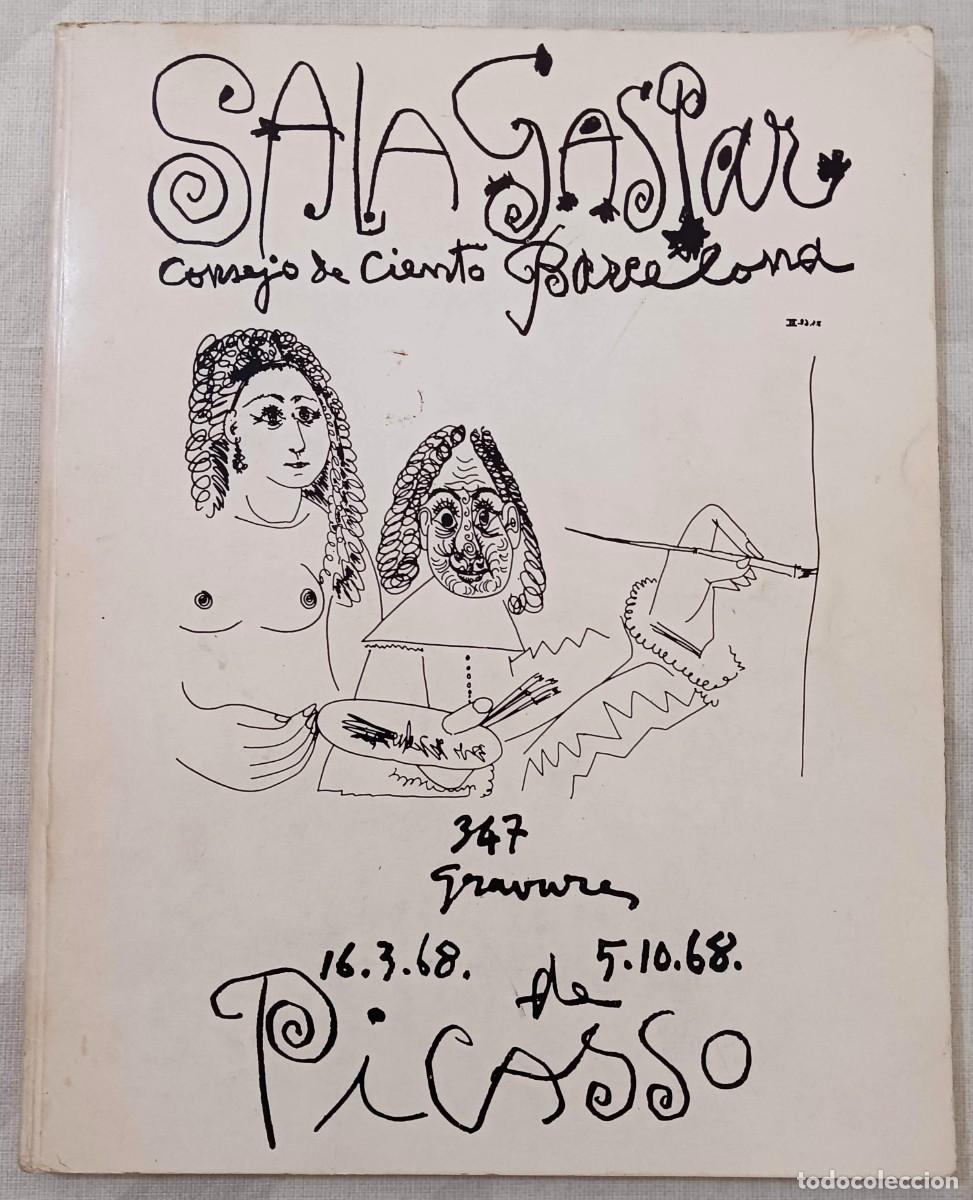 SALA GASPar
Consejo de Ciento Barcelona
347
gravures
16.3.68. 5.10.68.
de
PiCASSO
todocoleccion